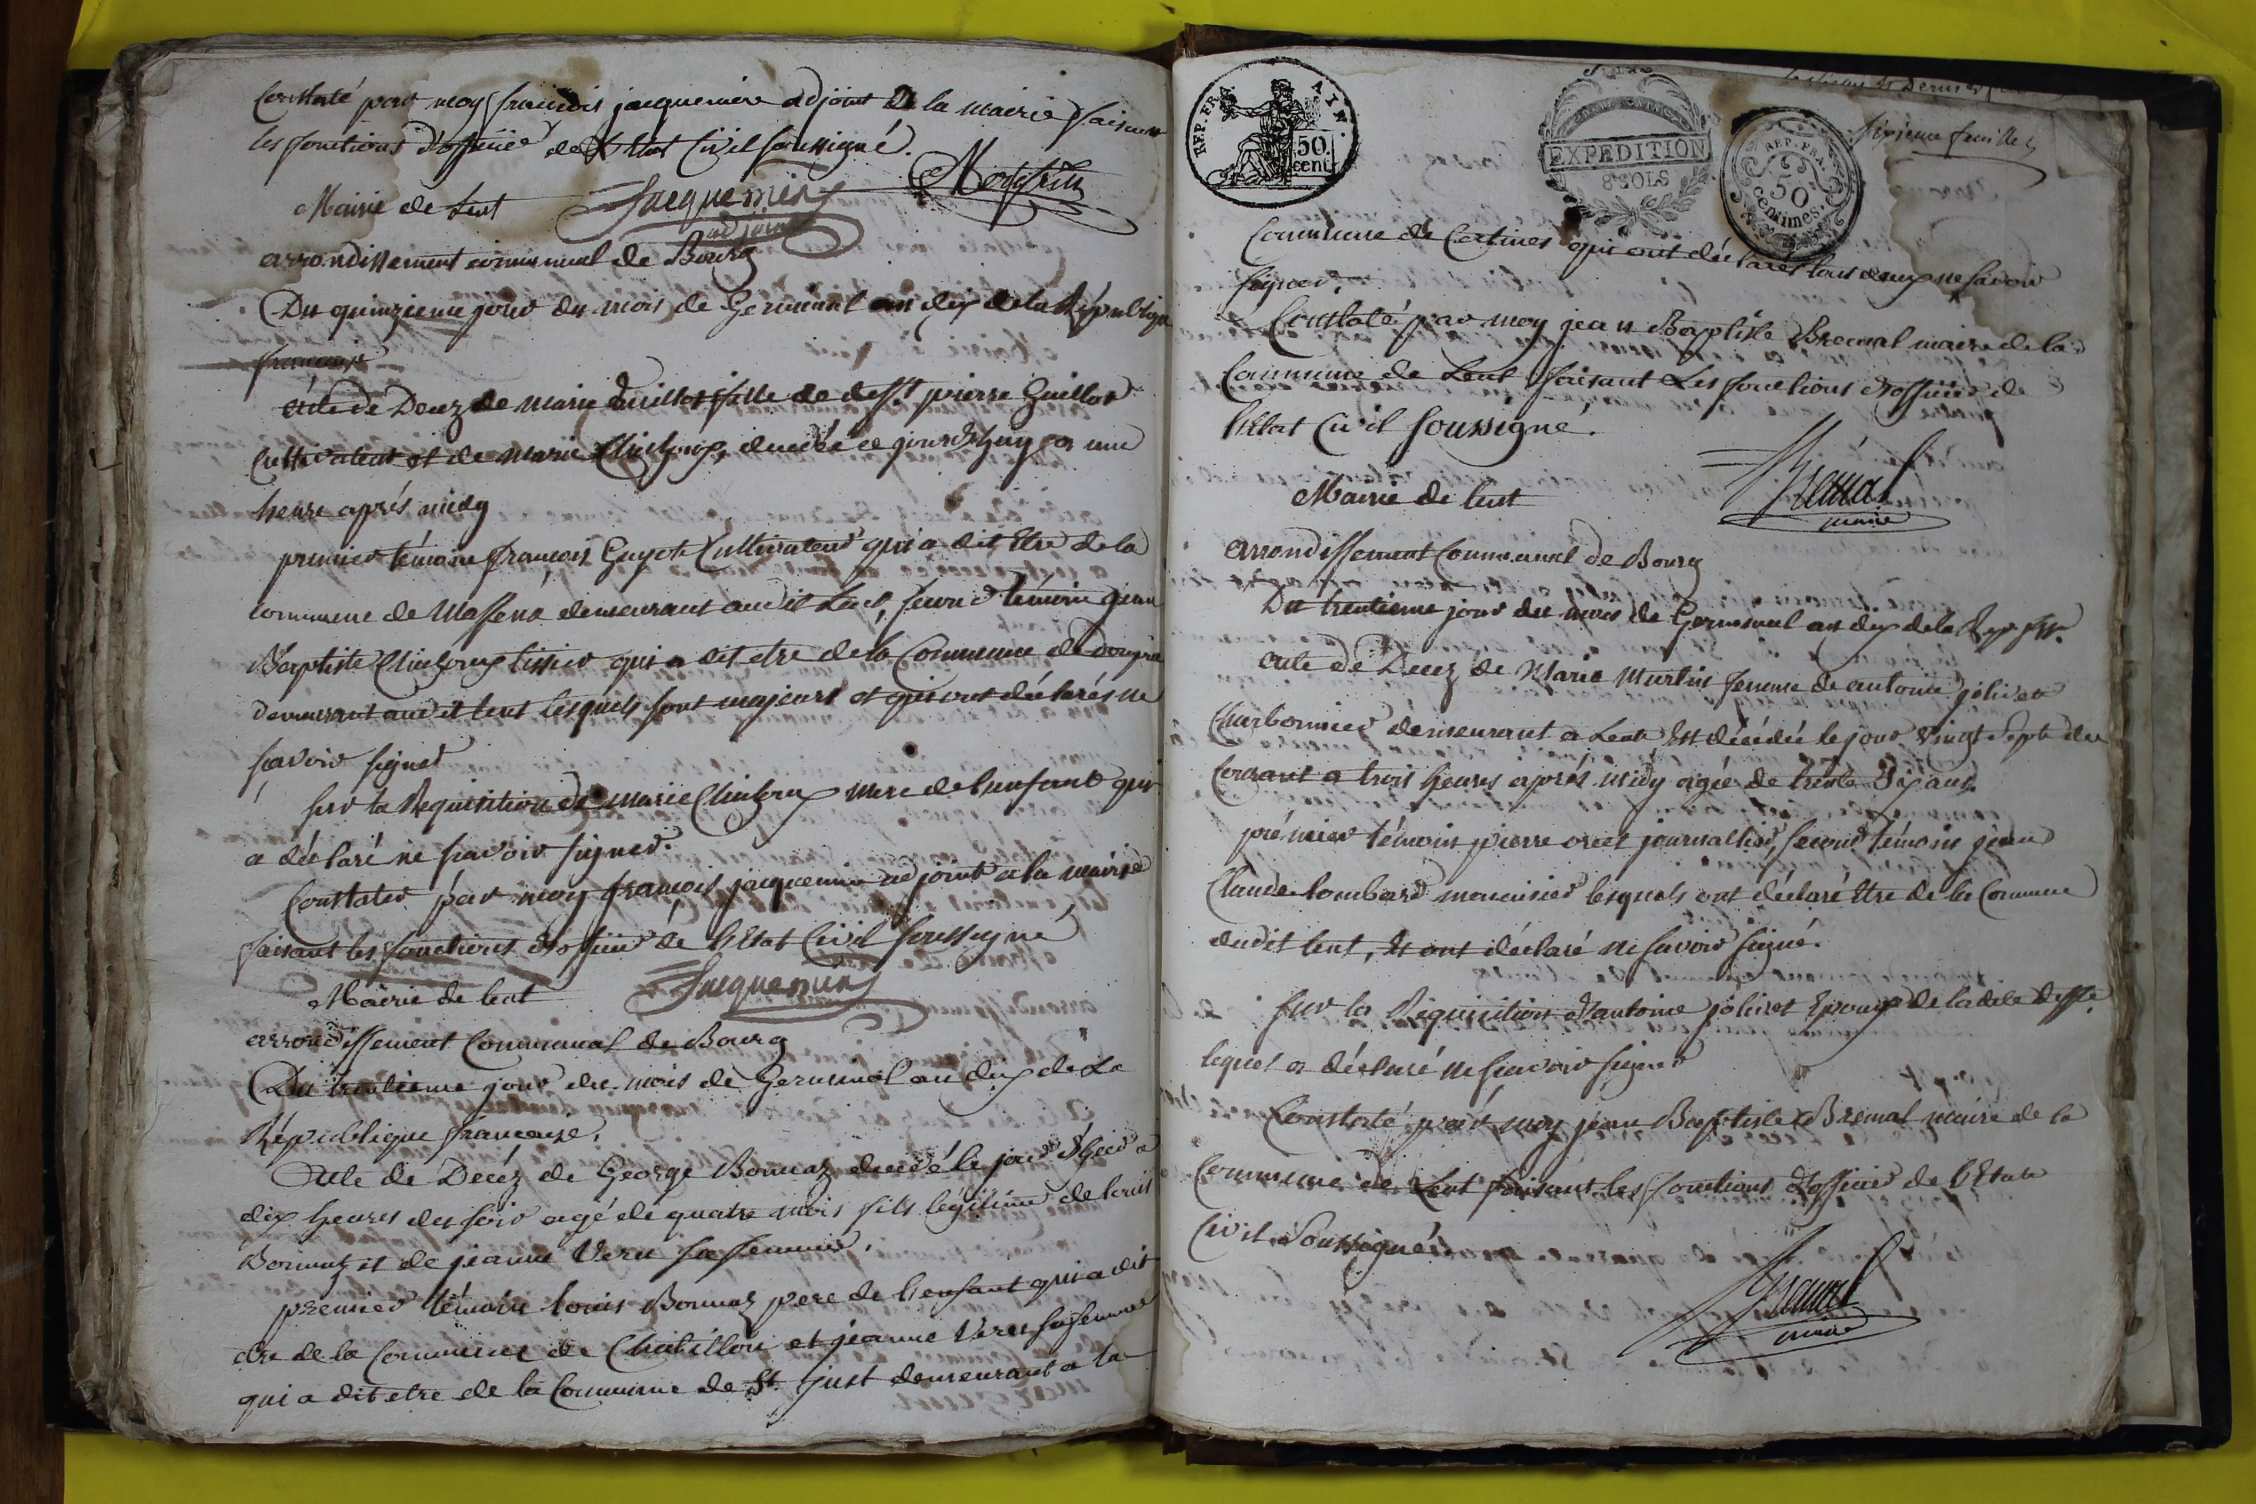 Constaté par moy françois jacquemin adjoint de la mairie faisant
les fonctions d'officier de l'Etat Civil soussigné.
Mairie de Lent
Jacquemin
adjoint
arrondissement communal de Bourg
Du quinzieme jour du mois de Germinal an dix de la République
françoise
acte de Decez de marie Guillot fille de deff.t pierre Guillot
Cultivateur et de marie decedée ce jourd'huy a une
heure aprés midy
premier témoin françois Guyot Cultivateur qui a dit Etre de la
commune de demeurant audit Lent, second témoin jean
Baptiste tissier qui a dit etre de la Commune de dompierre
demeurant audit lent lesquels sont majeurs et qui ont déclarés ne
savoir signer
sur la Requisition de marie mere de l'enfant qui
a déclaré ne scavoir signer.
Constater par moy françois jacquemin adjoint a la mairie
faisant les fonctions d'officier de l'Etat Civil soussigné
Mairie de lent
Jacquemin
arrondissement Communal de Bourg
Du trentieme jour du mois de Germinal an dix de La
République françoise.
Acte de Décéz de George Bonnaz decedé le jour d'hier a
dix heures du soir agé de quatre mois fils légitime de louis
Bonnaz et de jeanne Veru sa femme.
premier témoin louis Bonnaz pere de l'enfant qui a dit
etre de la Commune de Chatillon et jeanne Veru sa femme
qui a dit etre de la Commune de St. just demeurant a la
REP. FRA. AIN.
50 cent
EXPEDITION
8 SOLS
REP. FRA.
50
Centimes.
Sixieme feuille
Commune de Certines qui ont déclarés tous deux ne savoir
signer.
Constaté par moy jean Baptiste Bremal maire de la
Commune de Lent faisant Les fonctions d'officier de
l'Etat Civil soussigné.
Mairie de lent
Bremal
maire
arrondissement Communal de Bourg
Du trentieme jour du mois de Germinal an dix de la Rep. fse.
acte de Decez de Marie Martin femme de antoine jolivet
Charbonnier demeurant a Lent Est décédée le jour vingt Sept du
Courant a trois heures aprés midy agée de trente Six ans.
prémier témoin pierre journallier, second témoin jean
Claude lombard lesquels ont déclaré Etre de la Commune
dudit lent, Et ont déclaré ne savoir signé.
sur la Requisition d'antoine jolivet Epoux de la dite deffte.
lequel a déclaré ne scavoir signer
Constaté par moy jean Baptiste Bremal maire de la
Commune de Lent faisant les fonctions d'officier de l'Etat
Civil soussigné.
Bremal
maire